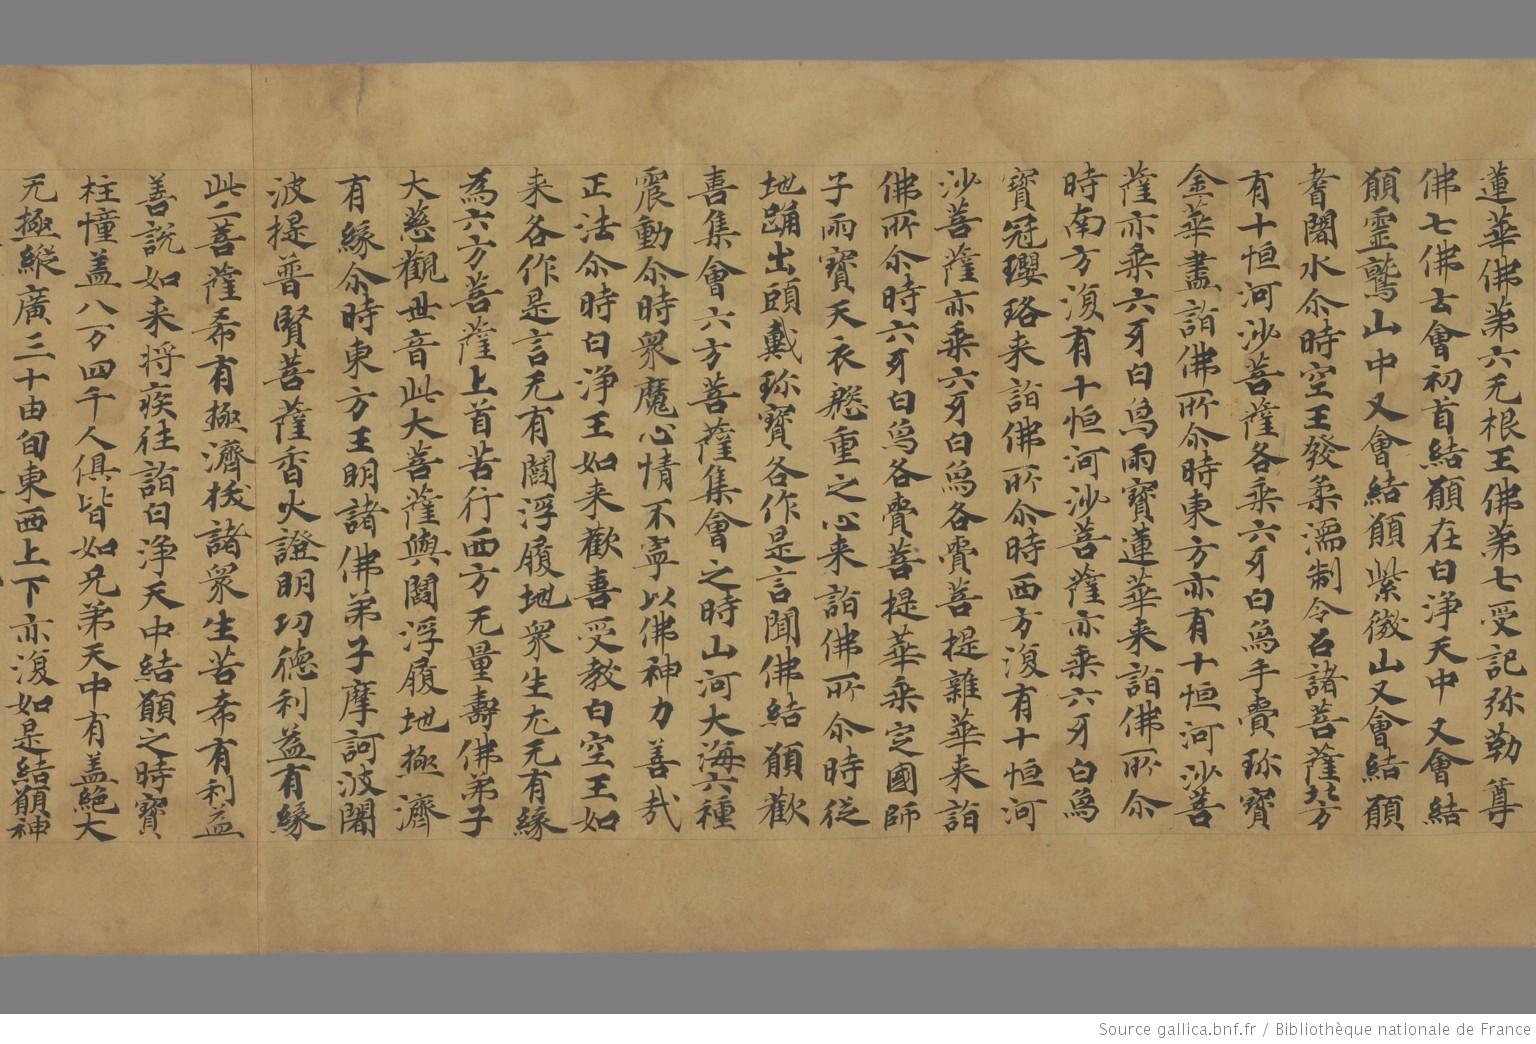 蓮華佛第六无根王佛第七受記弥勒尊
佛七佛去會初首結願在白淨天中又會結
願靈鷲山中又會結願紫微山又會結願
耆闍水尒時空王發柔濡制令召諸菩薩北方
有十恒河沙菩薩各乘六牙白為手賷珎寶
金華盡詣佛所尒時東方亦有十恒河沙菩
薩亦乘六牙白為雨寶蓮華来詣佛所尒
時南方復有十恒河沙菩薩亦乘六牙白為
寶冠瓔珞来詣佛所尒時西方復有十恒河
沙菩薩亦乘六牙白為各賷菩提雜華来詣
佛所尒時六牙白為各賷菩提華乘定國師
子雨寶天衣慇重之心来詣佛所尒時從
地踊出頭戴珎寶各作是言聞佛結願歡
喜集會六方菩薩集會之時山河大海六種
震動尒時衆魔心情不寧以佛神力善哉
正法尒時白淨王如来歡喜受教白空王如
来各作是言无有閻浮履地衆生尤无有縁
為六方菩薩上首苦行西方无量壽佛弟子
大慈觀世音此大菩薩與閻浮履地極濟
有縁尒時東方王明諸佛弟子摩訶波闍
波提普賢菩薩香火證明功德利益有縁
此二菩薩希有極濟拔諸衆生苦希有利益
善說如来将疾往詣白淨天中結願之時寶
柱幢盖八万四千人俱皆如兄弟天中有盖絶大
无極縱廣三十由旬東西上下亦復如是結願神
Source gallica.bnf.fr / Bibliothèque nationale de France